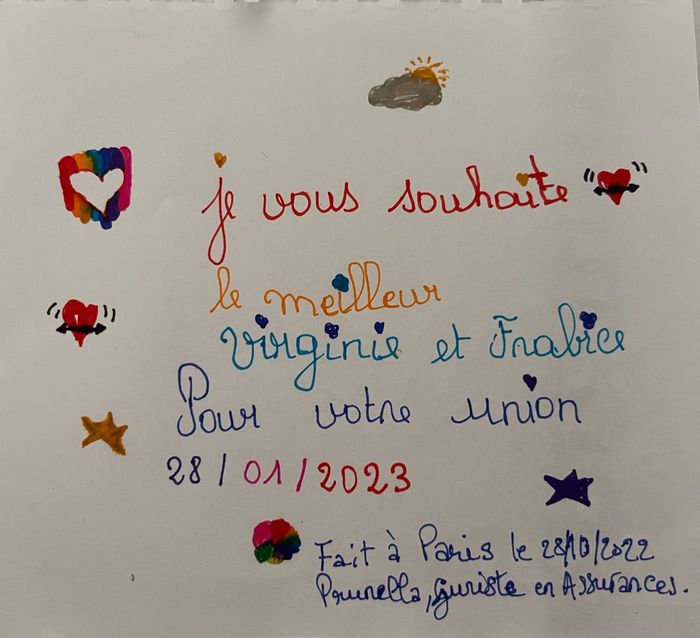 je vous souhaite
le meilleur
Virginie et Frabice
Pour votre union
28/01/2023
Fait à Paris le 28/10/2022
Prunella, Juriste en Assurances.